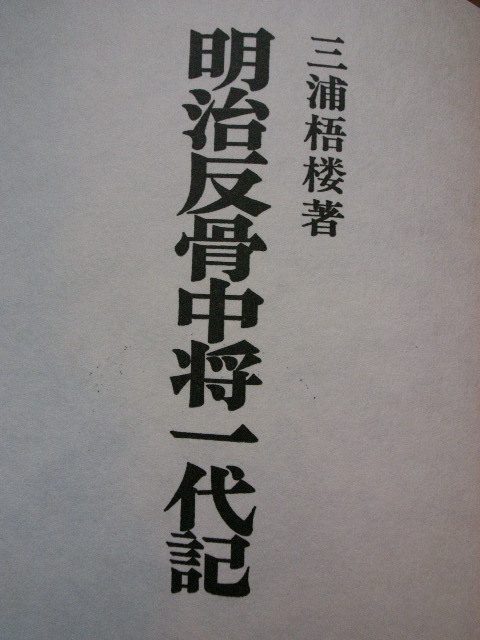 三浦梧楼著
明治反骨中将一代記